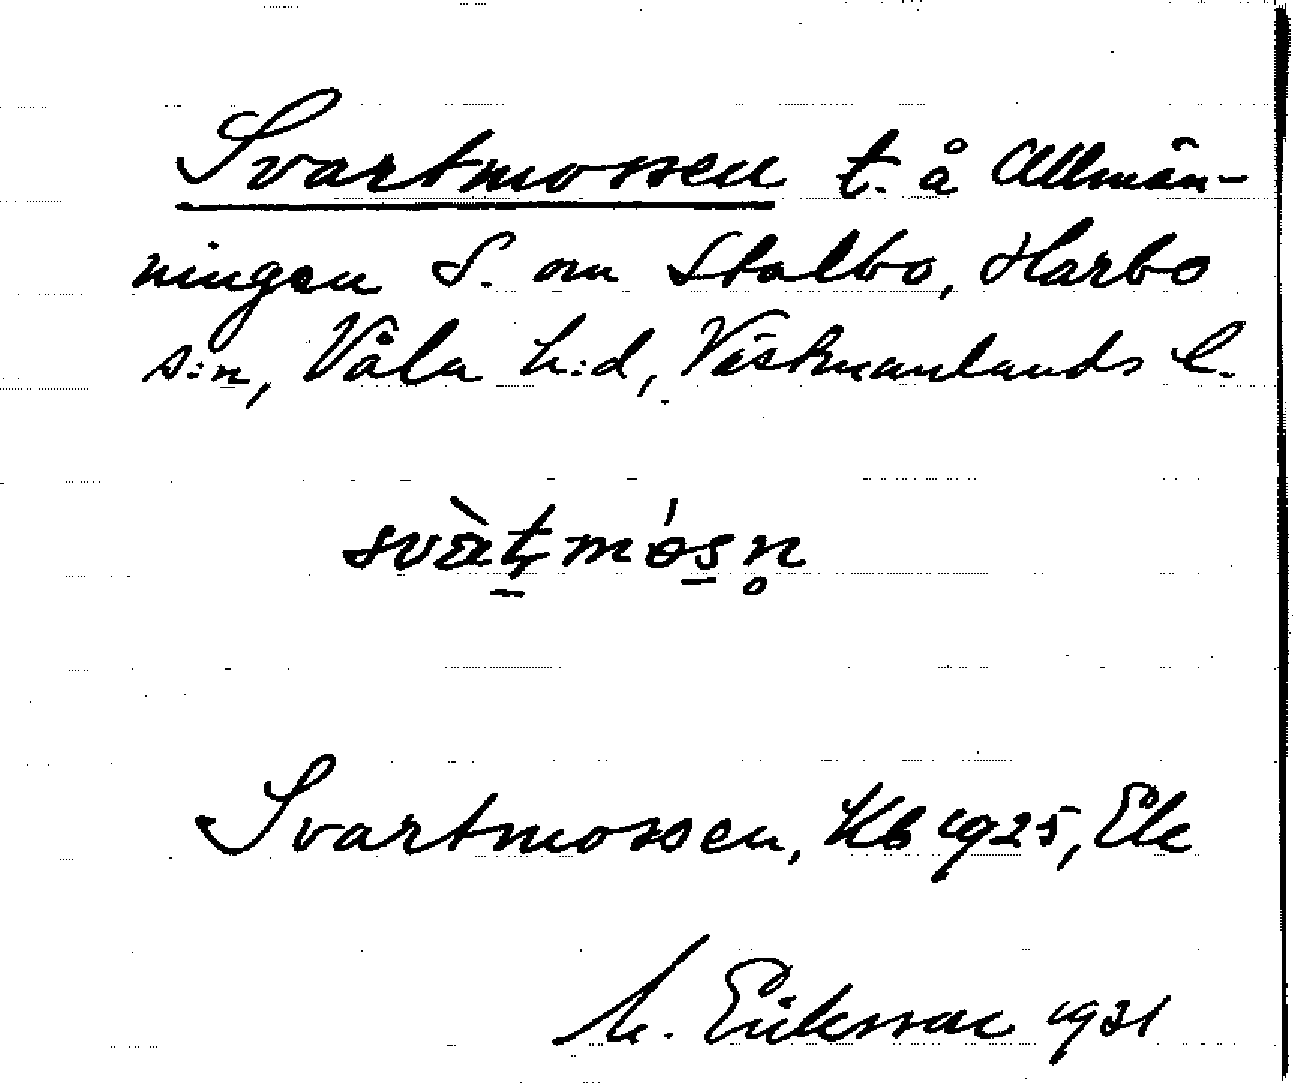 Svartmossen t. å Allmän-
ningen S. om Stalbo, Harbo
s:n, Våla h:d, Västmanlands l.
svàṭmósn̥
Svartmossen, Kb 1925, Ek
M. Eriksson 1931